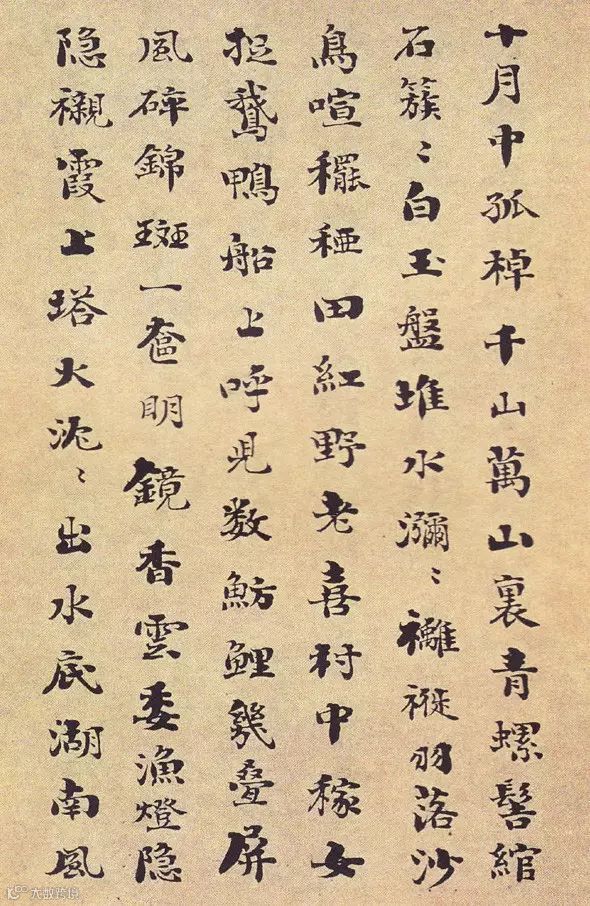 十月中孤棹千山萬山裏青螺髻綰
石簇〻白玉盤堆水瀰〻褷羽落沙
鳥喧䆉稏田紅野老喜村中稼女
捉鵝鴨船上呼兒数魴鯉幾疊屏
風碎錦斑一奩明鏡香雲委漁燈隐
隐襯霞上塔火沉〻出水底湖南風
大数跨境